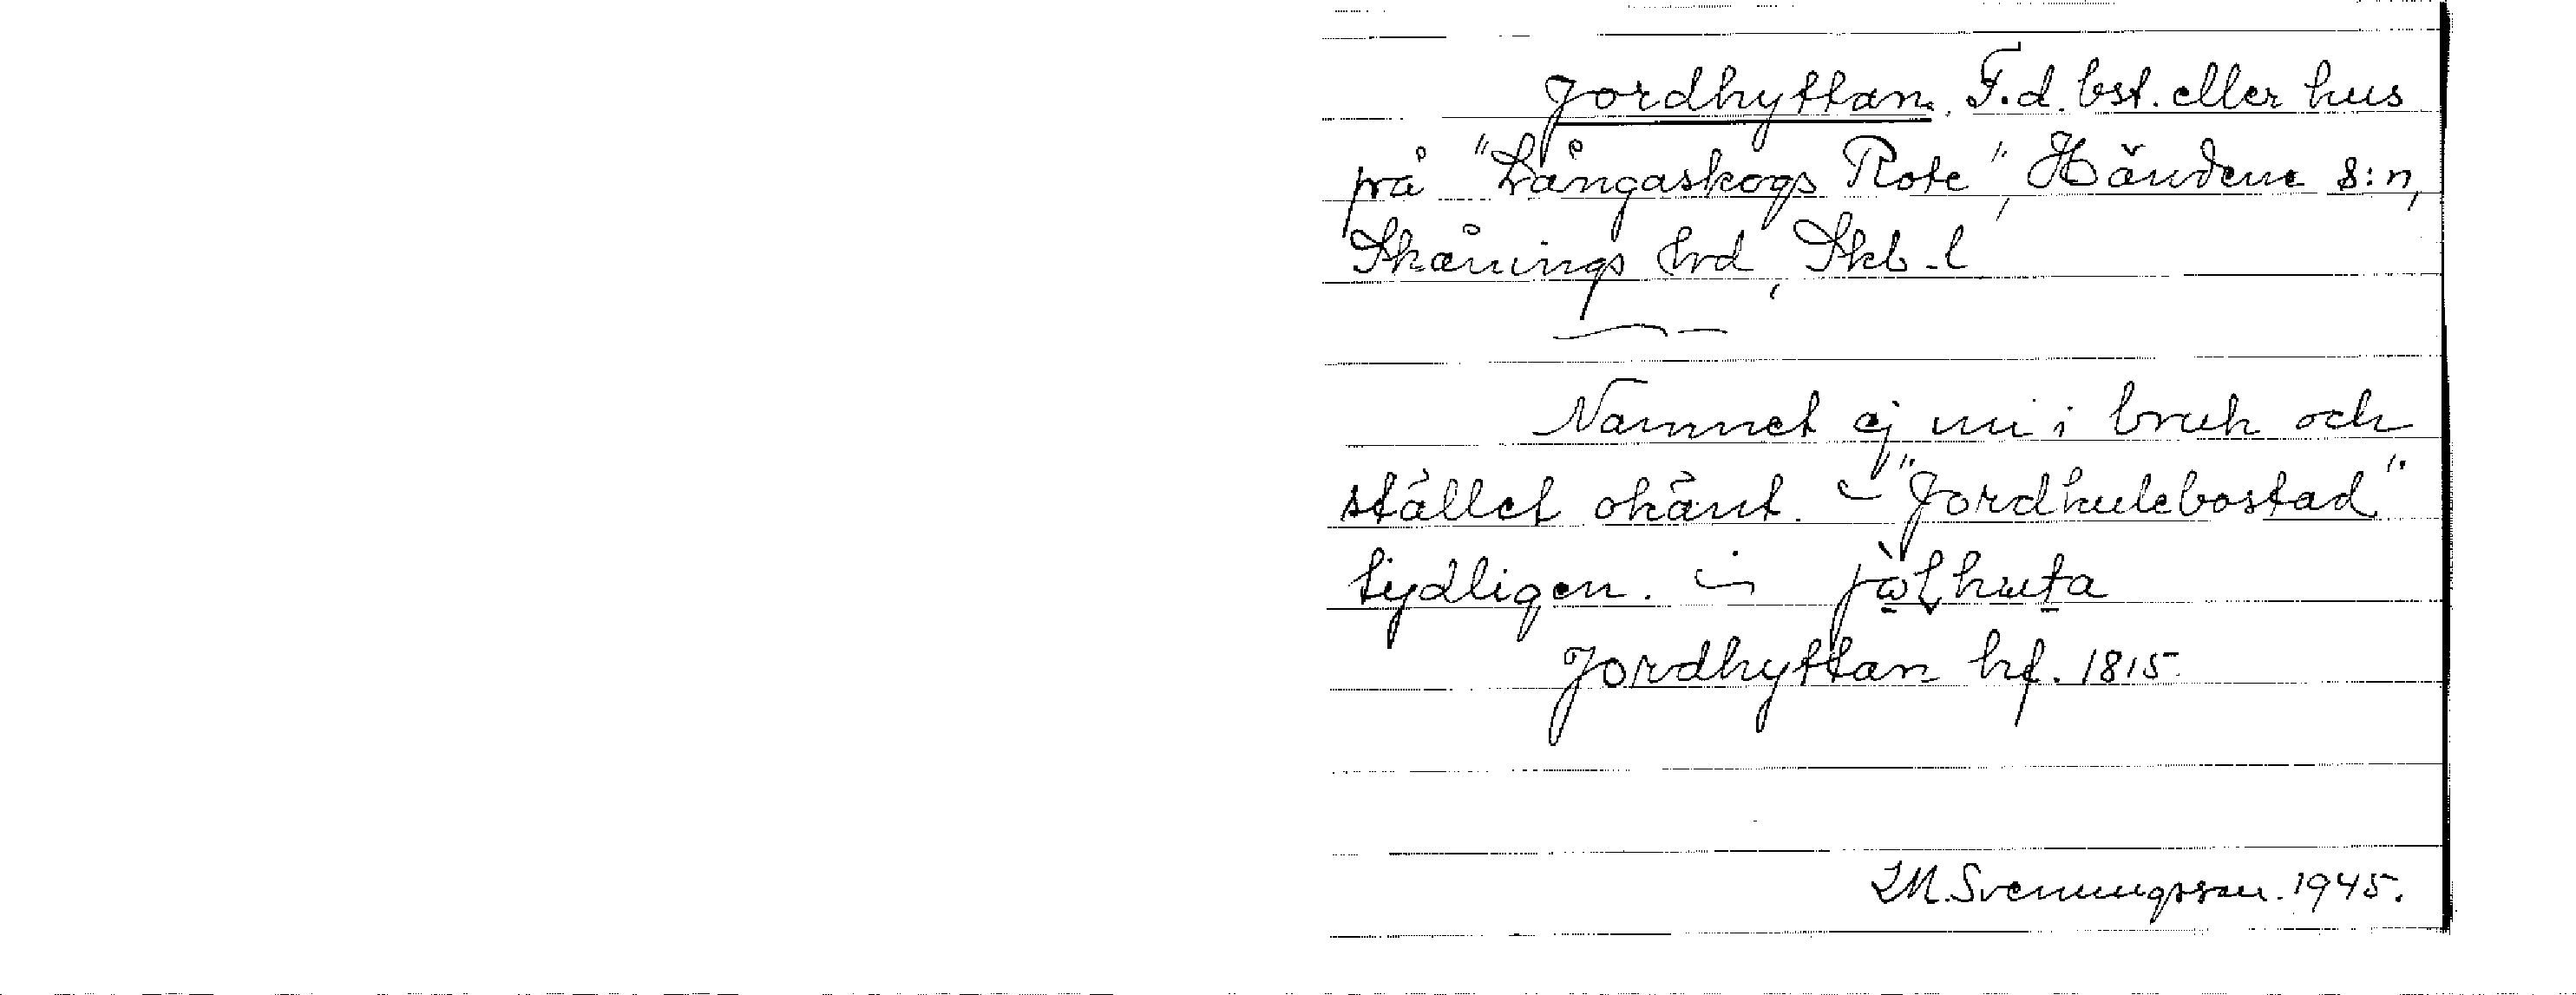 Jordhyttan. F.d. bst. eller hus
på "Långaskogs Rote", Händene s:n,
Skånings hrd, Skb. l
Namnet ej nu i bruk och
stället okänt. – "Jordkulebostad"
tydligen. –
Jordhyttan hf. 1815.
Svenungsson. 1945.